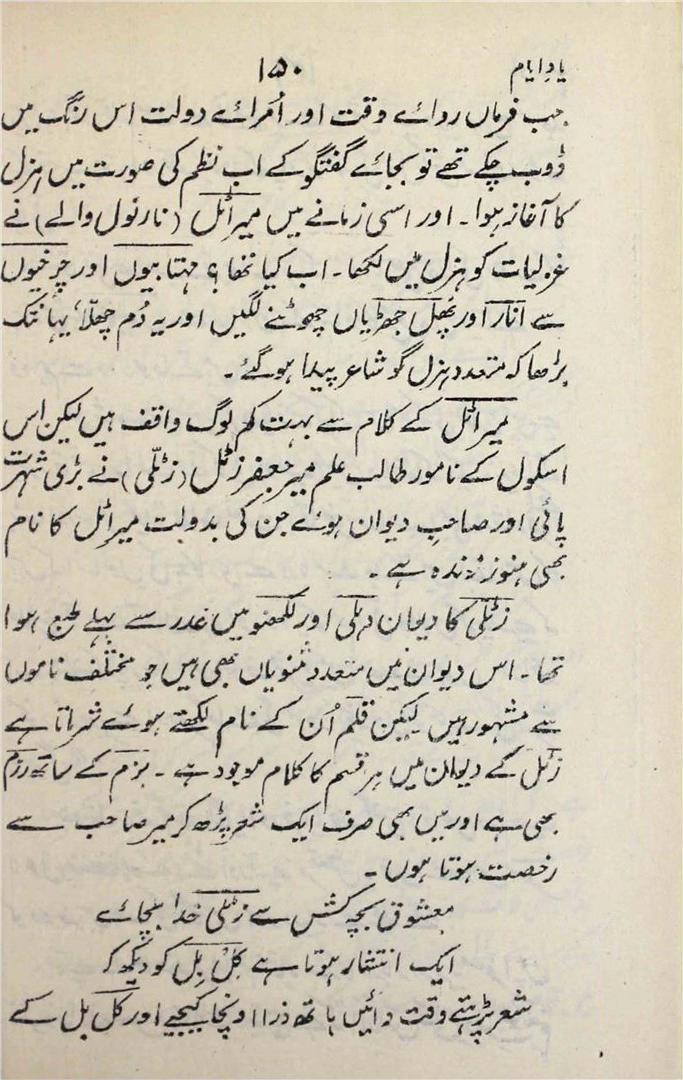 یادِ ایام
۱۵۰
جب فرماں روائے وقت اور اُمرائے دولت اس رنگ میں
ڈوب چکے تھے تو بجائے گفتگو کے اب نظم کی صورت میں ہزل
کا آغاز ہوا۔ اور اسی زمانے میں میر اٹل (نارنول والے) نے
غزلیات کو ہزل میں لکھا۔ اب کیا تھا؟ مہتابیوں اور چرخیوں
سے انار اور پھل جھڑیاں چھوٹنے لگیں اور یہ دُم چھلّا، یہانتک
بڑھا کہ متعدد ہزل گو شاعر پیدا ہو گئے۔
میر اٹل کے کلام سے بہت کم لوگ واقف ہیں لیکن اس
اسکول کے نامور طالب علم میر جعفر زٹل (زٹلّی) نے بڑی شہرت
پائی اور صاحبِ دیوان ہوئے جن کی بدولت میر اٹل کا نام
بھی ہنوز زندہ ہے۔
زٹلی کا دیوان دہلی اور لکھنؤ میں غدر سے پہلے طبع ہوا
تھا۔ اس دیوان میں متعدد مثنویاں بھی ہیں جو مختلف ناموں
سے مشہور ہیں لیکن قلم اُن کے نام لکھتے ہوئے شرماتا ہے
زٹل کے دیوان میں ہر قسم کا کلام موجود ہے۔ بزم کے ساتھ رزم
بھی ہے اور میں بھی صرف ایک شعر پڑھ کر میر صاحب سے
رخصت ہوتا ہوں۔
معشوق بچہ کش سے زٹلی خدا بچائے
ایک انتشار ہوتا ہے کل بل کو دیکھ کر
شعر پڑہتے وقت دائیں ہاتھ ذرا اونچا کیجیے اور کل بل کے